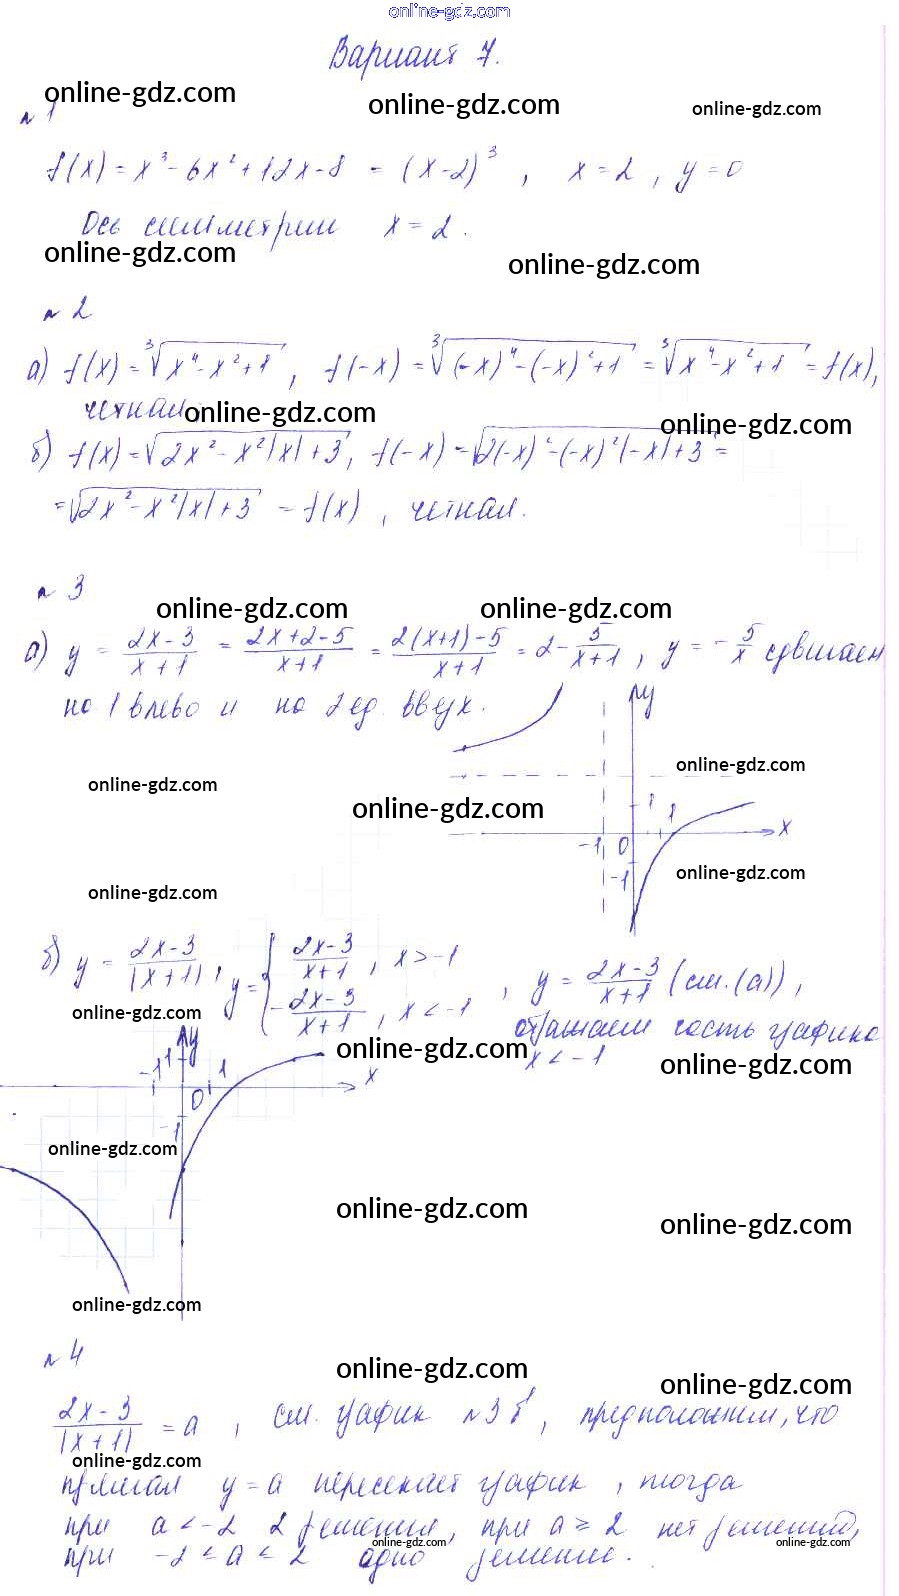 online-gdz.com
Вариант 7.
online-gdz.com online-gdz.com online-gdz.com
№ 1
f(x) = x³ - 6x² + 12x - 8 = (x-2)³, x = 2, y = 0
Ось симметрии x = 2.
online-gdz.com online-gdz.com
№ 2
а) f(x) = ∛(x⁴ - x² + 1), f(-x) = ∛((-x)⁴ - (-x)² + 1) = ∛(x⁴ - x² + 1) = f(x),
четная.
online-gdz.com online-gdz.com
б) f(x) = √(2x² - x²|x| + 3), f(-x) = √(2(-x)² - (-x)²|-x| + 3) =
= √(2x² - x²|x| + 3) = f(x), четная.
№ 3
online-gdz.com online-gdz.com
а) y = (2x-3)/(x+1) = (2x+2-5)/(x+1) = (2(x+1)-5)/(x+1) = 2 - 5/(x+1), y = -5/x сдвигаем
на 1 влево и на 2 ед. вверх.
y
online-gdz.com online-gdz.com
online-gdz.com
1 1
-1 0 x
-1
online-gdz.com online-gdz.com
б) y = (2x-3)/|x+1|, y = { (2x-3)/(x+1), x > -1
-(2x-3)/(x+1), x < -1, y = (2x-3)/(x+1) (см. (а)),
отражаем часть графика
x < -1
online-gdz.com
online-gdz.com online-gdz.com
y
-1 1 1 x
0
-1
online-gdz.com
online-gdz.com online-gdz.com
online-gdz.com
№ 4
online-gdz.com online-gdz.com
(2x-3)/|x+1| = a, см. график №3 б, предположим, что
online-gdz.com
прямая y = a пересекает график, тогда
при a < -2 2 решения, при a ≥ 2 нет решений,
online-gdz.com online-gdz.com
при -2 ≤ a < 2 одно решение.